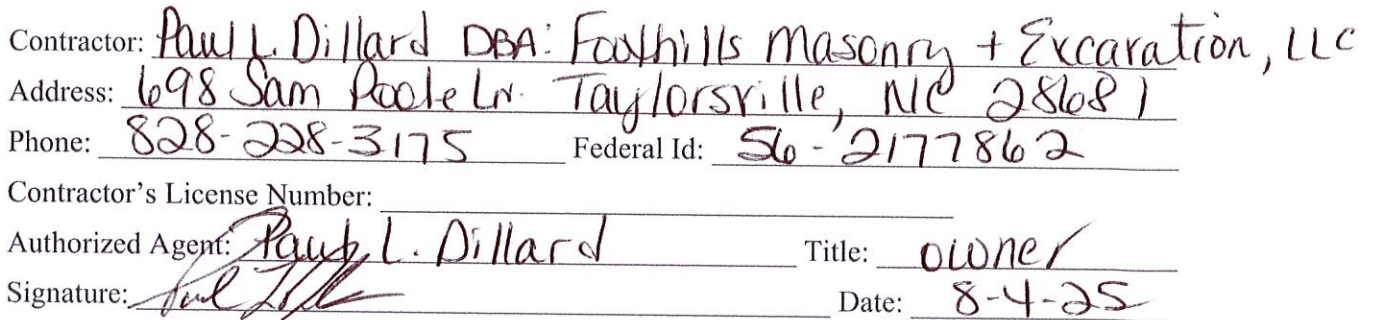 Contractor: Paul L. Dillard DBA: Foothills Masonry + Excavation, LLC
Address: 698 Sam Poole Ln. Taylorsville, NC 28681
Phone: 828-228-3175 Federal Id: 56-2177862
Contractor's License Number:
Authorized Agent: Paul L. Dillard Title: owner
Signature: Date: 8-4-25